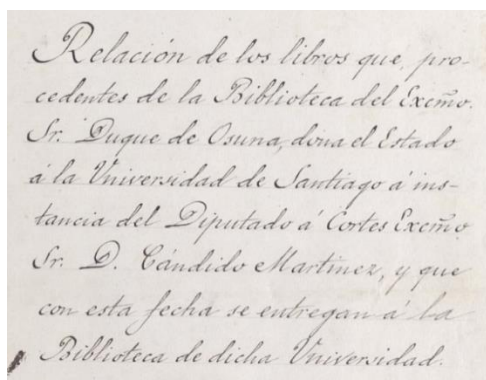 Relación de los libros que, pro-
cedentes de la Biblioteca del Excmõ.
Sr. Duque de Osuna, dona el Estado
á la Universidad de Santiago á ins-
tancia del Diputado á Cortes Excmõ.
Sr. D. Cándido Martinez, y que
con esta fecha se entregan á la
Biblioteca de dicha Universidad.